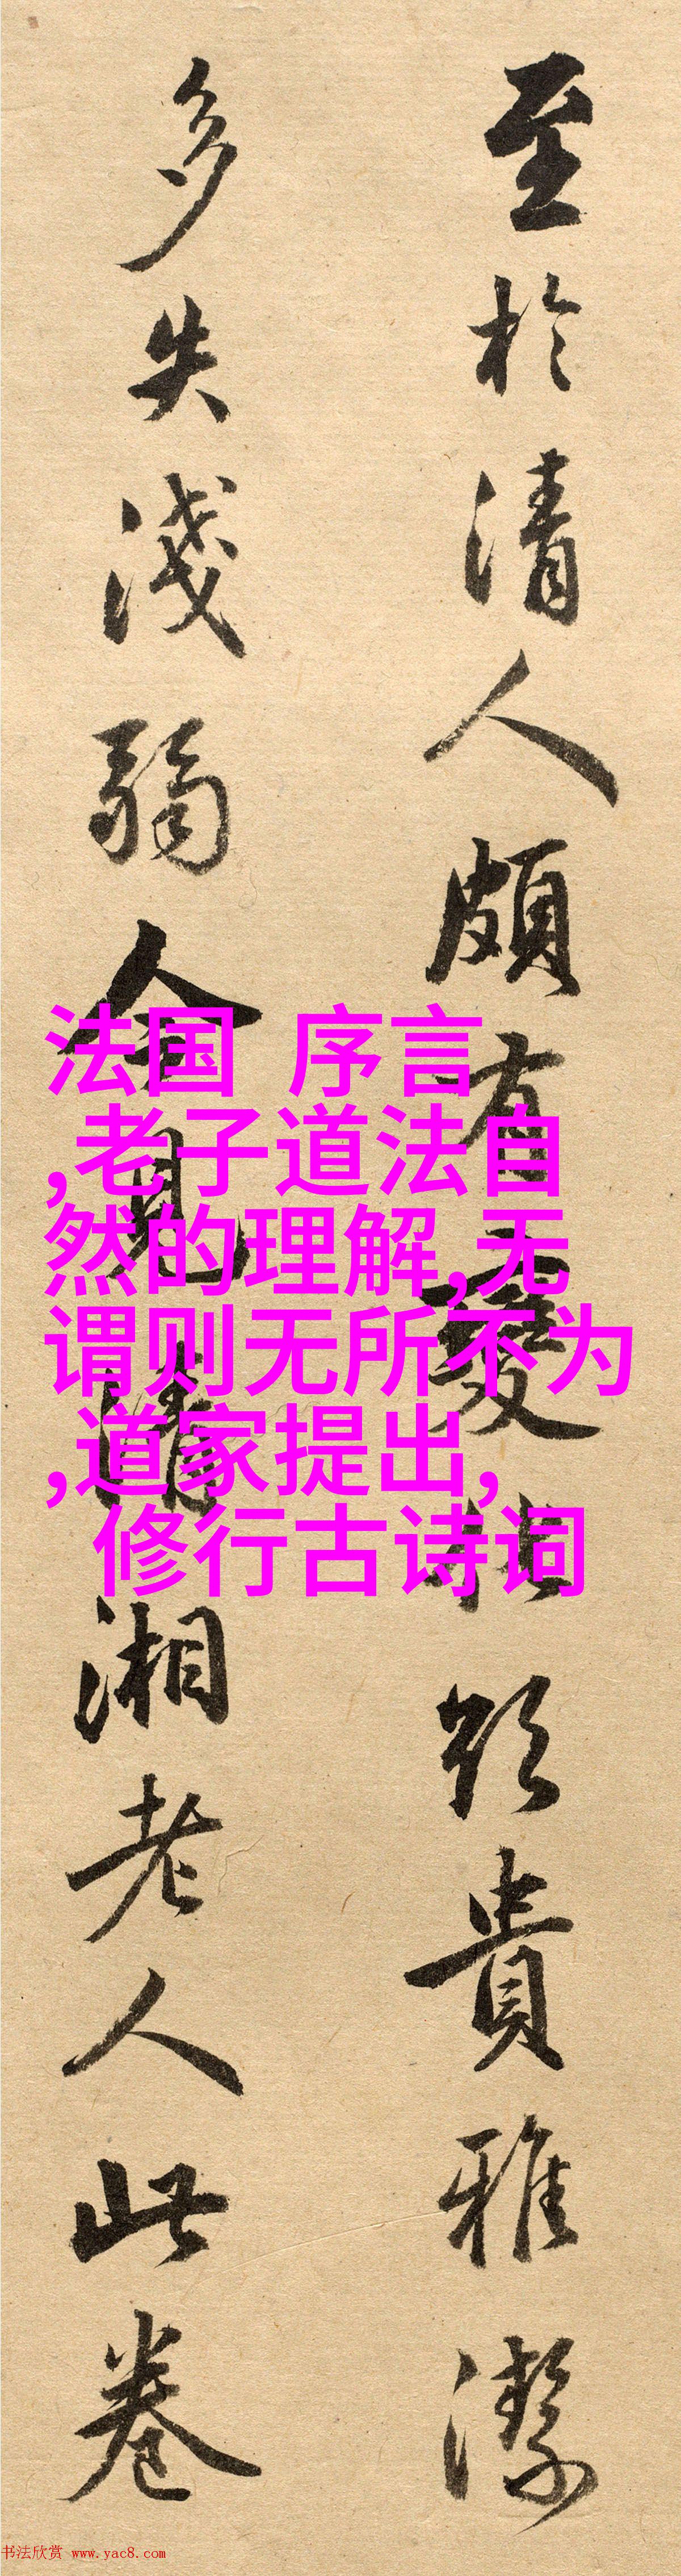 至於清人頗有變貴雅潔
多失淺弱余見清湘老人此卷
法国 序言
,老子道法自
然的理解,无
谓则无所不为
,道家提出,
修行古诗词
书法欣赏 www.yac8.com